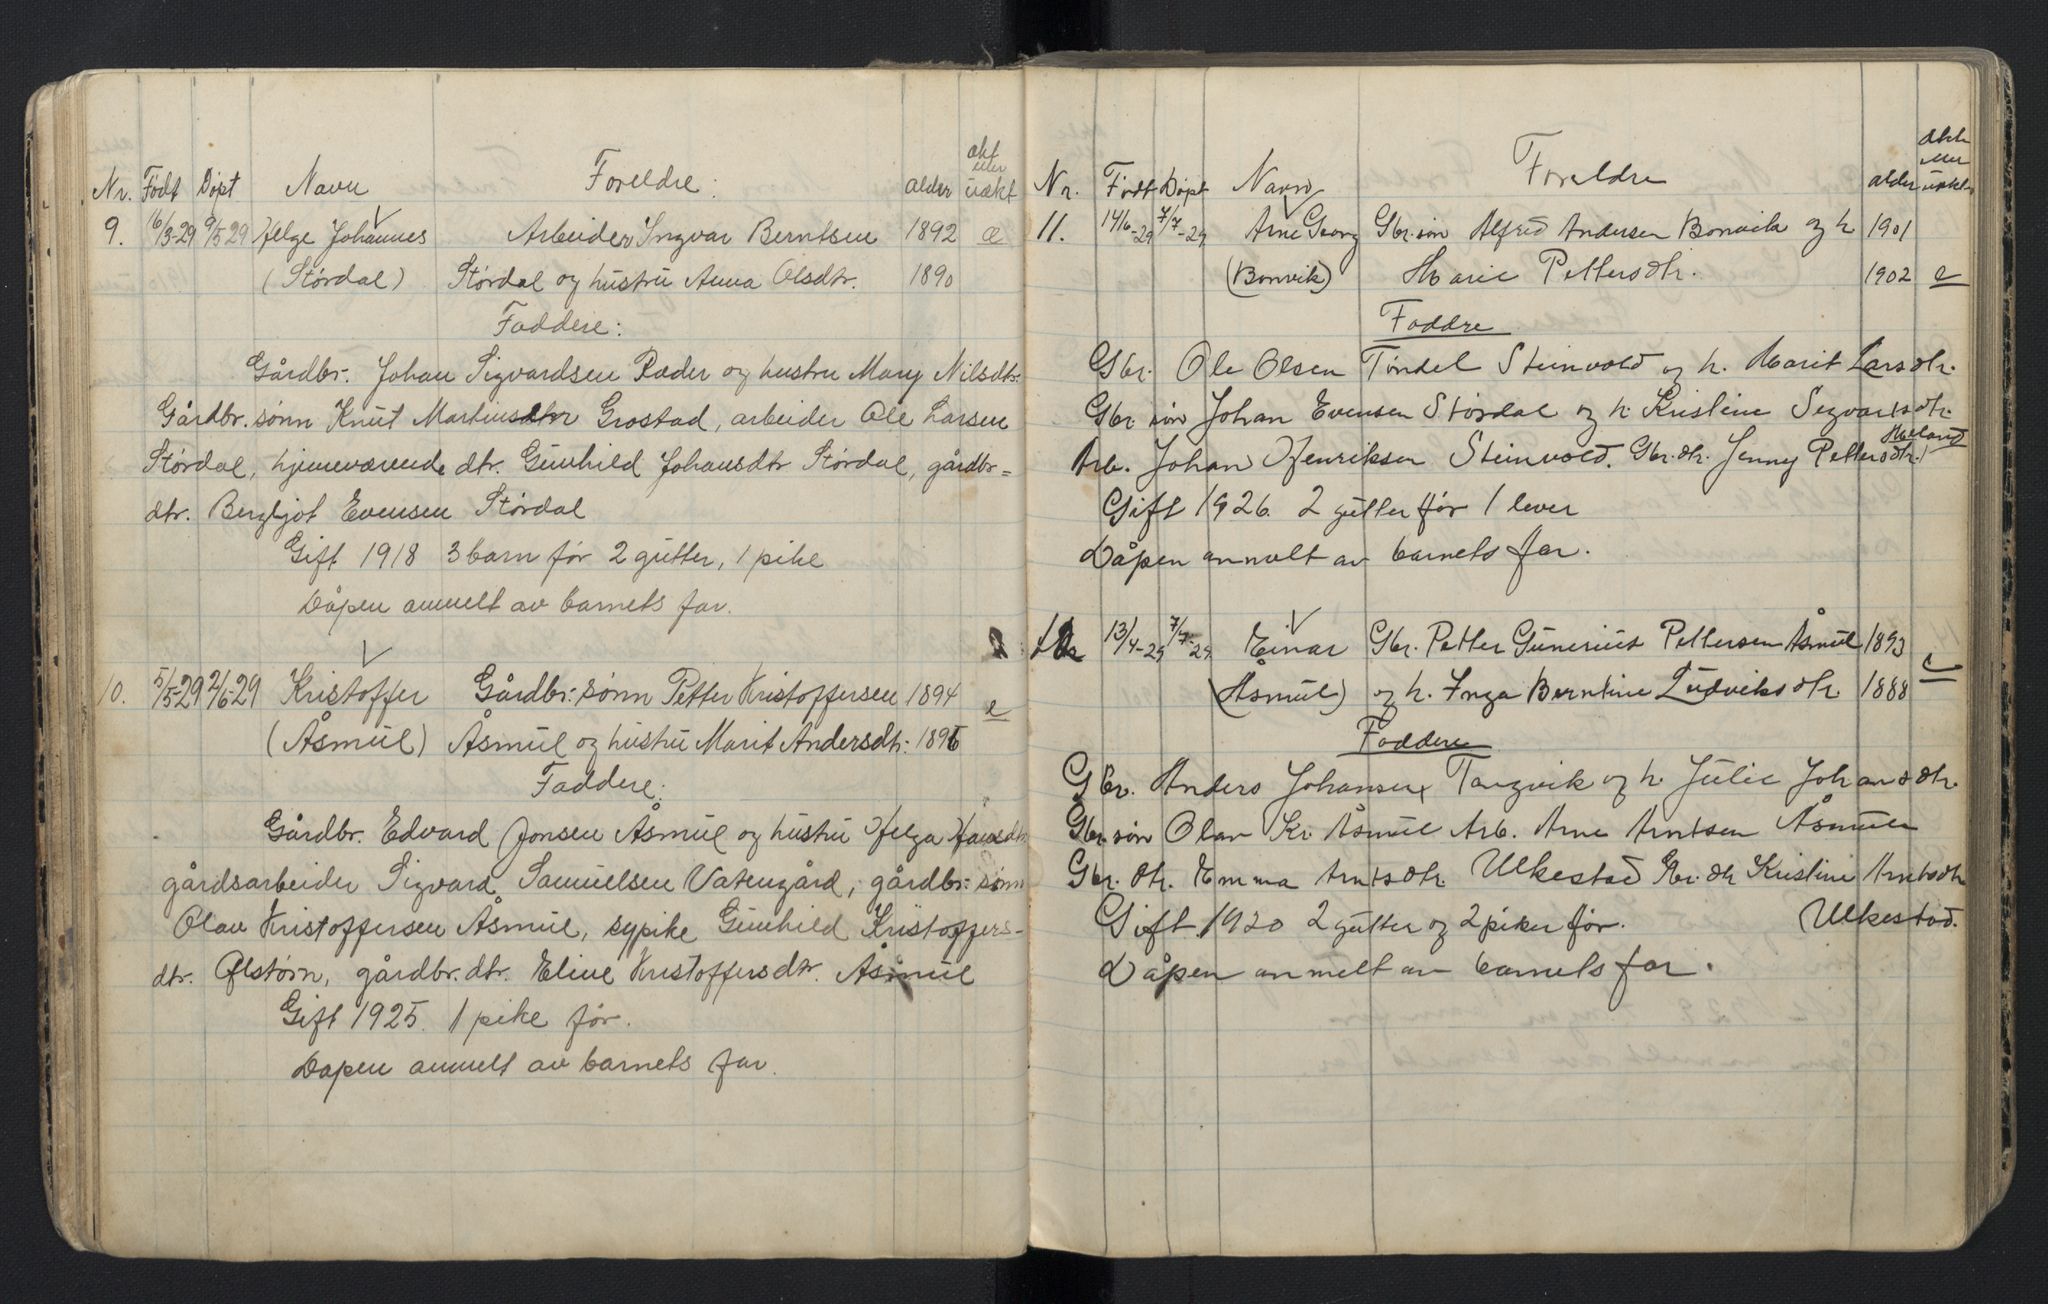 Nr. Født Døpt Navn Foreldre: alder ekt eller uekt
9. 16/3-29 9/5 29 Helge Johannes Arbeider Ingvar Berntsen 1892 e
(Størdal) Størdal og hustru Anna Olsdtr. 1890
Faddere:
Gårdbr. Johan Sigvardsen Ræder og hustru Mary Nilsdtr.
Gårdbr. sønn Knut Martinsen Grostad, arbeider Ole Larsen
Størdal, hjemeværende dtr. Gunhild Johansdtr Størdal, gårdbr=
dtr. Bergljot Evensen Størdal
Gift 1918 3 barn før 2 gutter, 1 pike
Dåpen anmelt av barnets far.
10. 5/5-29 2/6-29 Kristoffer Gårdbr: sønn Petter Kristoffersen 1894 e
(Åsmul) Åsmul og hustru Marit Andersdtr:
Faddere:
Gårdbr. Edvard Jonsen Åsmul og hustru Helga Hansdtr.
gårdsarbeider Sigvard Samuelsen Vatengård, gårdbr: sønn
Olav Kristoffersen Åsmul, sypike Gunhild Kristoffers-
dtr. Ølstørn, gårdbr. dtr. Eline Kristoffersdtr. Åsmul
Gift 1925. 1 pike før.
Dåpen anmelt av barnets far.
Nr. Født Døpt Navn Foreldre alder ekte eller uekte
11. 14/6-29 7/7-29 Arne Georg Gbr. søn Alfred Andersen Bonvik og h 1901
(Bonvik) Marie Pettersdtr. 1902 e
Faddre
Gbr. Ole Olsen Tøndel Steinvold og h. Marit Larsdtr.
Gbr søn Johan Evensen Størdal og h. Kristine Segvartsdtr.
Arb. Johan Henriksen Steinvold. Gbr. dtr. Jenny Pettersdtr. Høiland
Gift 1926. 2 gutter før 1 lever
Dåpen anmelt av barnets far.
12 13/4-29 7/7-29 Einar Gbr. Petter Gunerius Pettersen Åsmul 1893
(Åsmul) og h. Inga Berntine Ludviksdtr. 1888 e
Faddere
Gbr. Anders Johansen Tangvik og h. Julie Johansdtr.
Gbr. søn Olav Kr. Åsmul Arb. Arne Arntsen Åsmul
Gbr. dtr. Emma Arntsdtr. Ulkestad Gbr. dtr Kristine Arntsdtr
Gift 1920 2 gutter og 2 piker før. Ulkestad.
Dåpen anmelt av barnets far.